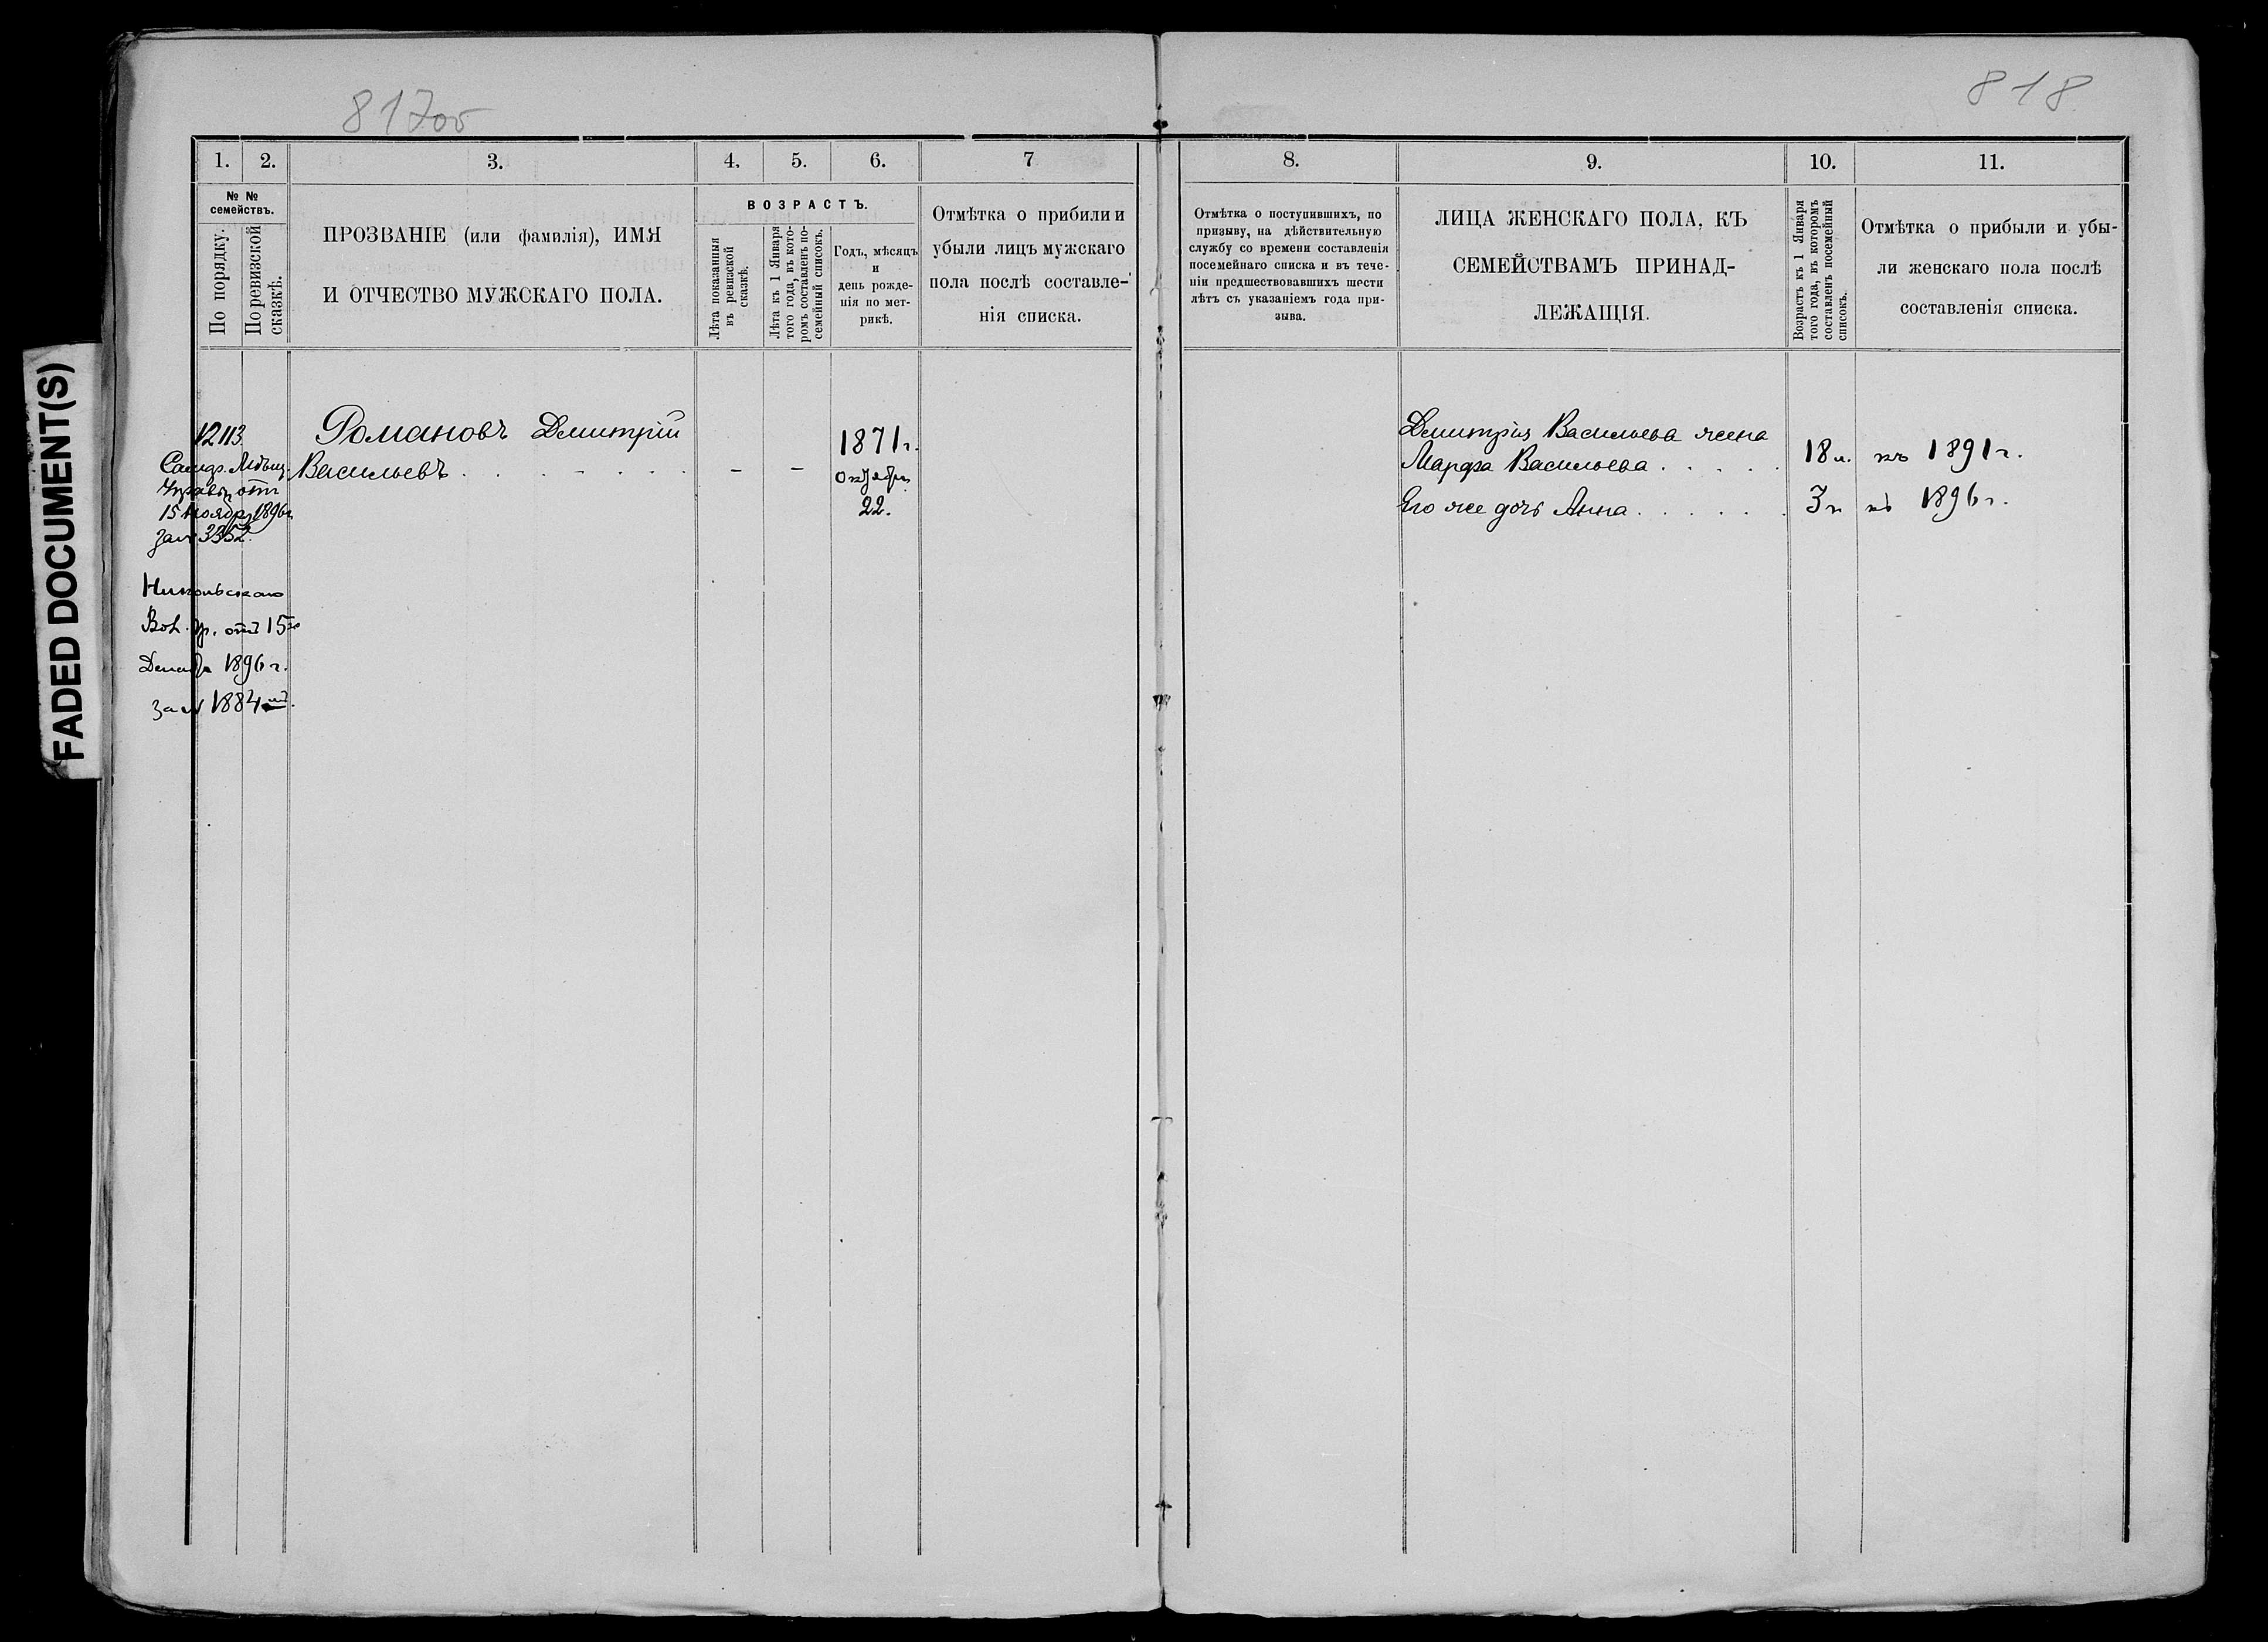 817об
818
1.
2.
3.
4.
5.
6.
7
№ №
семействъ.
По порядку.
По ревизской
сказкѣ.
ПРОЗВАНІЕ (или фамилія), ИМЯ
И ОТЧЕСТВО МУЖСКАГО ПОЛА.
ВОЗРАСТЪ.
Лѣта показанныя
въ ревизской
сказкѣ.
Лѣта къ 1 Января
того года, въ кото-
ромъ составленъ по-
семейный списокъ.
Годъ, мѣсяцъ
и
день рожде-
нія по мет-
рикѣ.
Отмѣтка о прибили и
убыли лицъ мужскаго
пола послѣ составле-
нія списка.
12113
Романовъ Дмитрій
Васильевъ . . . - . . . - -
1871 г.
октября
22.
Управы отъ
15 Ноября 1896 г.
за № 3352.
Никольскаго
Вол. Пр. отъ 15го
Декабря 1896 г.
за № 1884
8.
9.
10.
11.
Отмѣтка о поступившихъ, по
призыву, на дѣйствительную
службу со времени составленія
посемейнаго списка и въ тече-
ніи предшествовавшихъ шести
лѣтъ съ указаніемъ года при-
зыва.
ЛИЦА ЖЕНСКАГО ПОЛА, КЪ
СЕМЕЙСТВАМЪ ПРИНАД-
ЛЕЖАЩІЯ.
Возрастъ къ 1 Января
того года, въ которомъ
составленъ посемейный
списокъ.
Отмѣтка о прибыли и убы-
ли женскаго пола послѣ
составленія списка.
Дмитрія Васильева жена
Марфа Васильева . . . . . 18 л. къ 1891 г.
Его же дочь Анна . . . . . . 3 г. къ 1896 г.
FADED DOCUMENT(S)